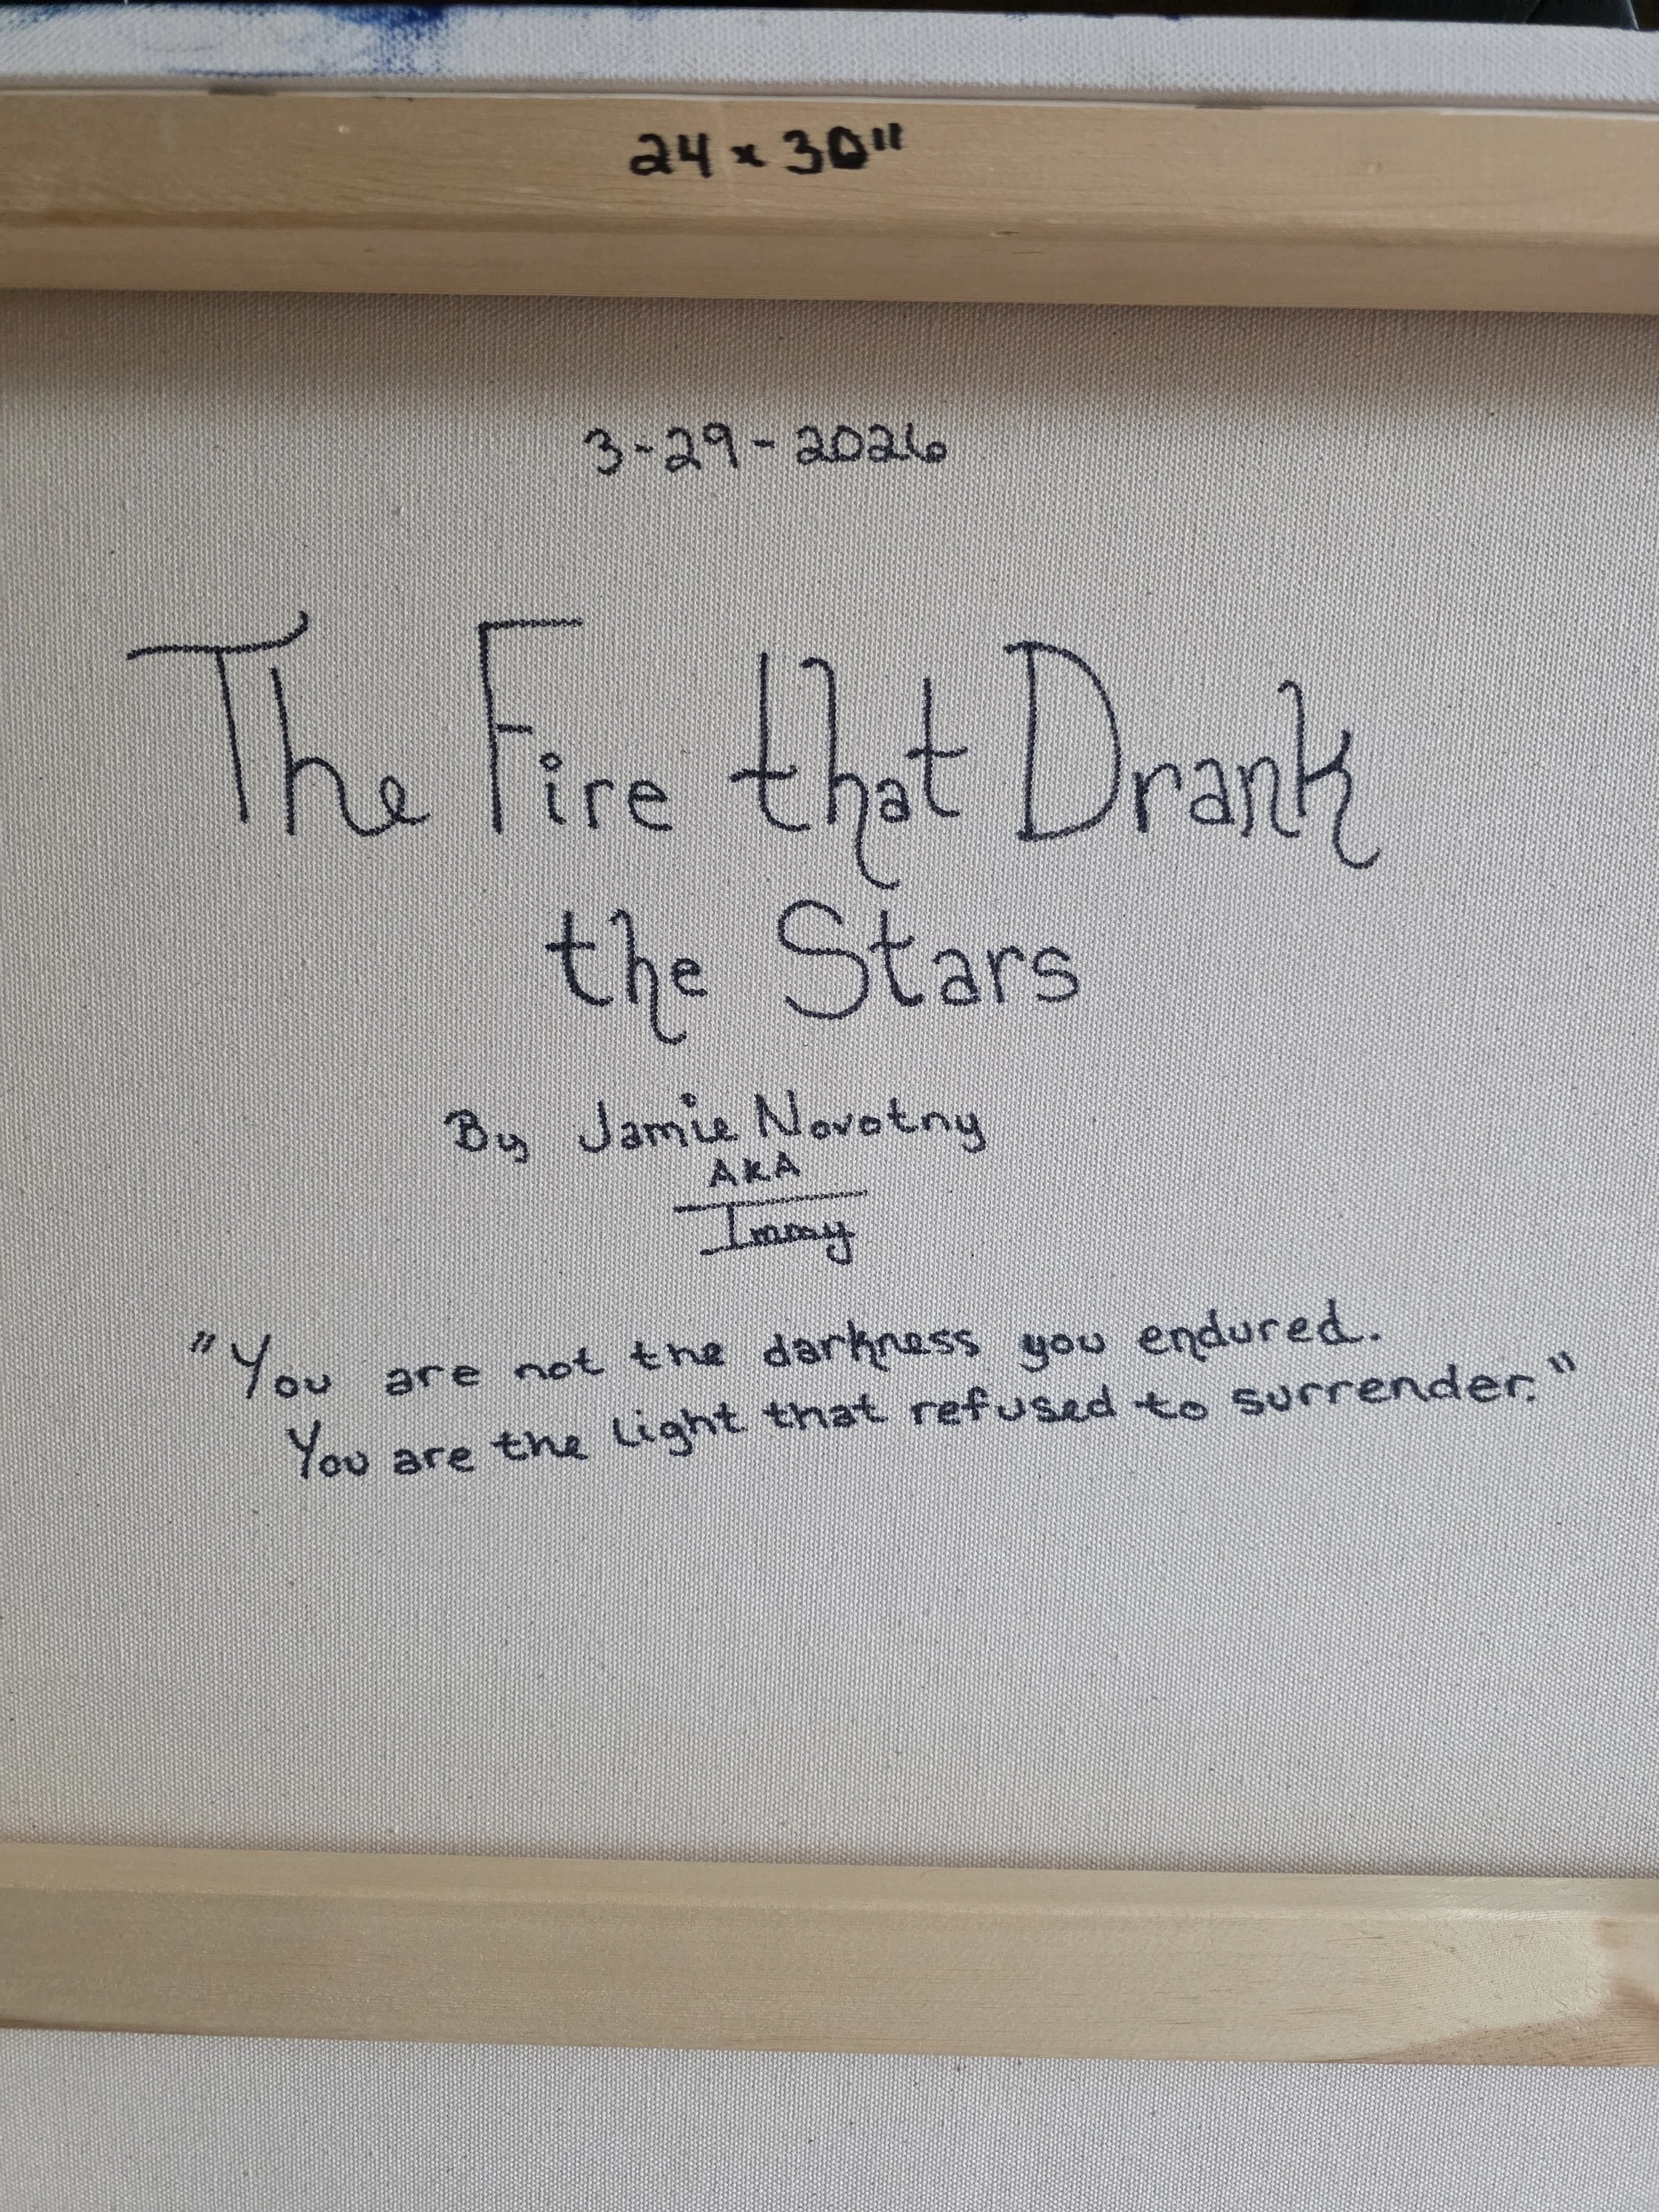 24 x 30"
3-29-2026
The Fire that Drank
the Stars
By Jamie Novotny
AKA
Immy
"You are not the darkness you endured.
You are the light that refused to surrender."